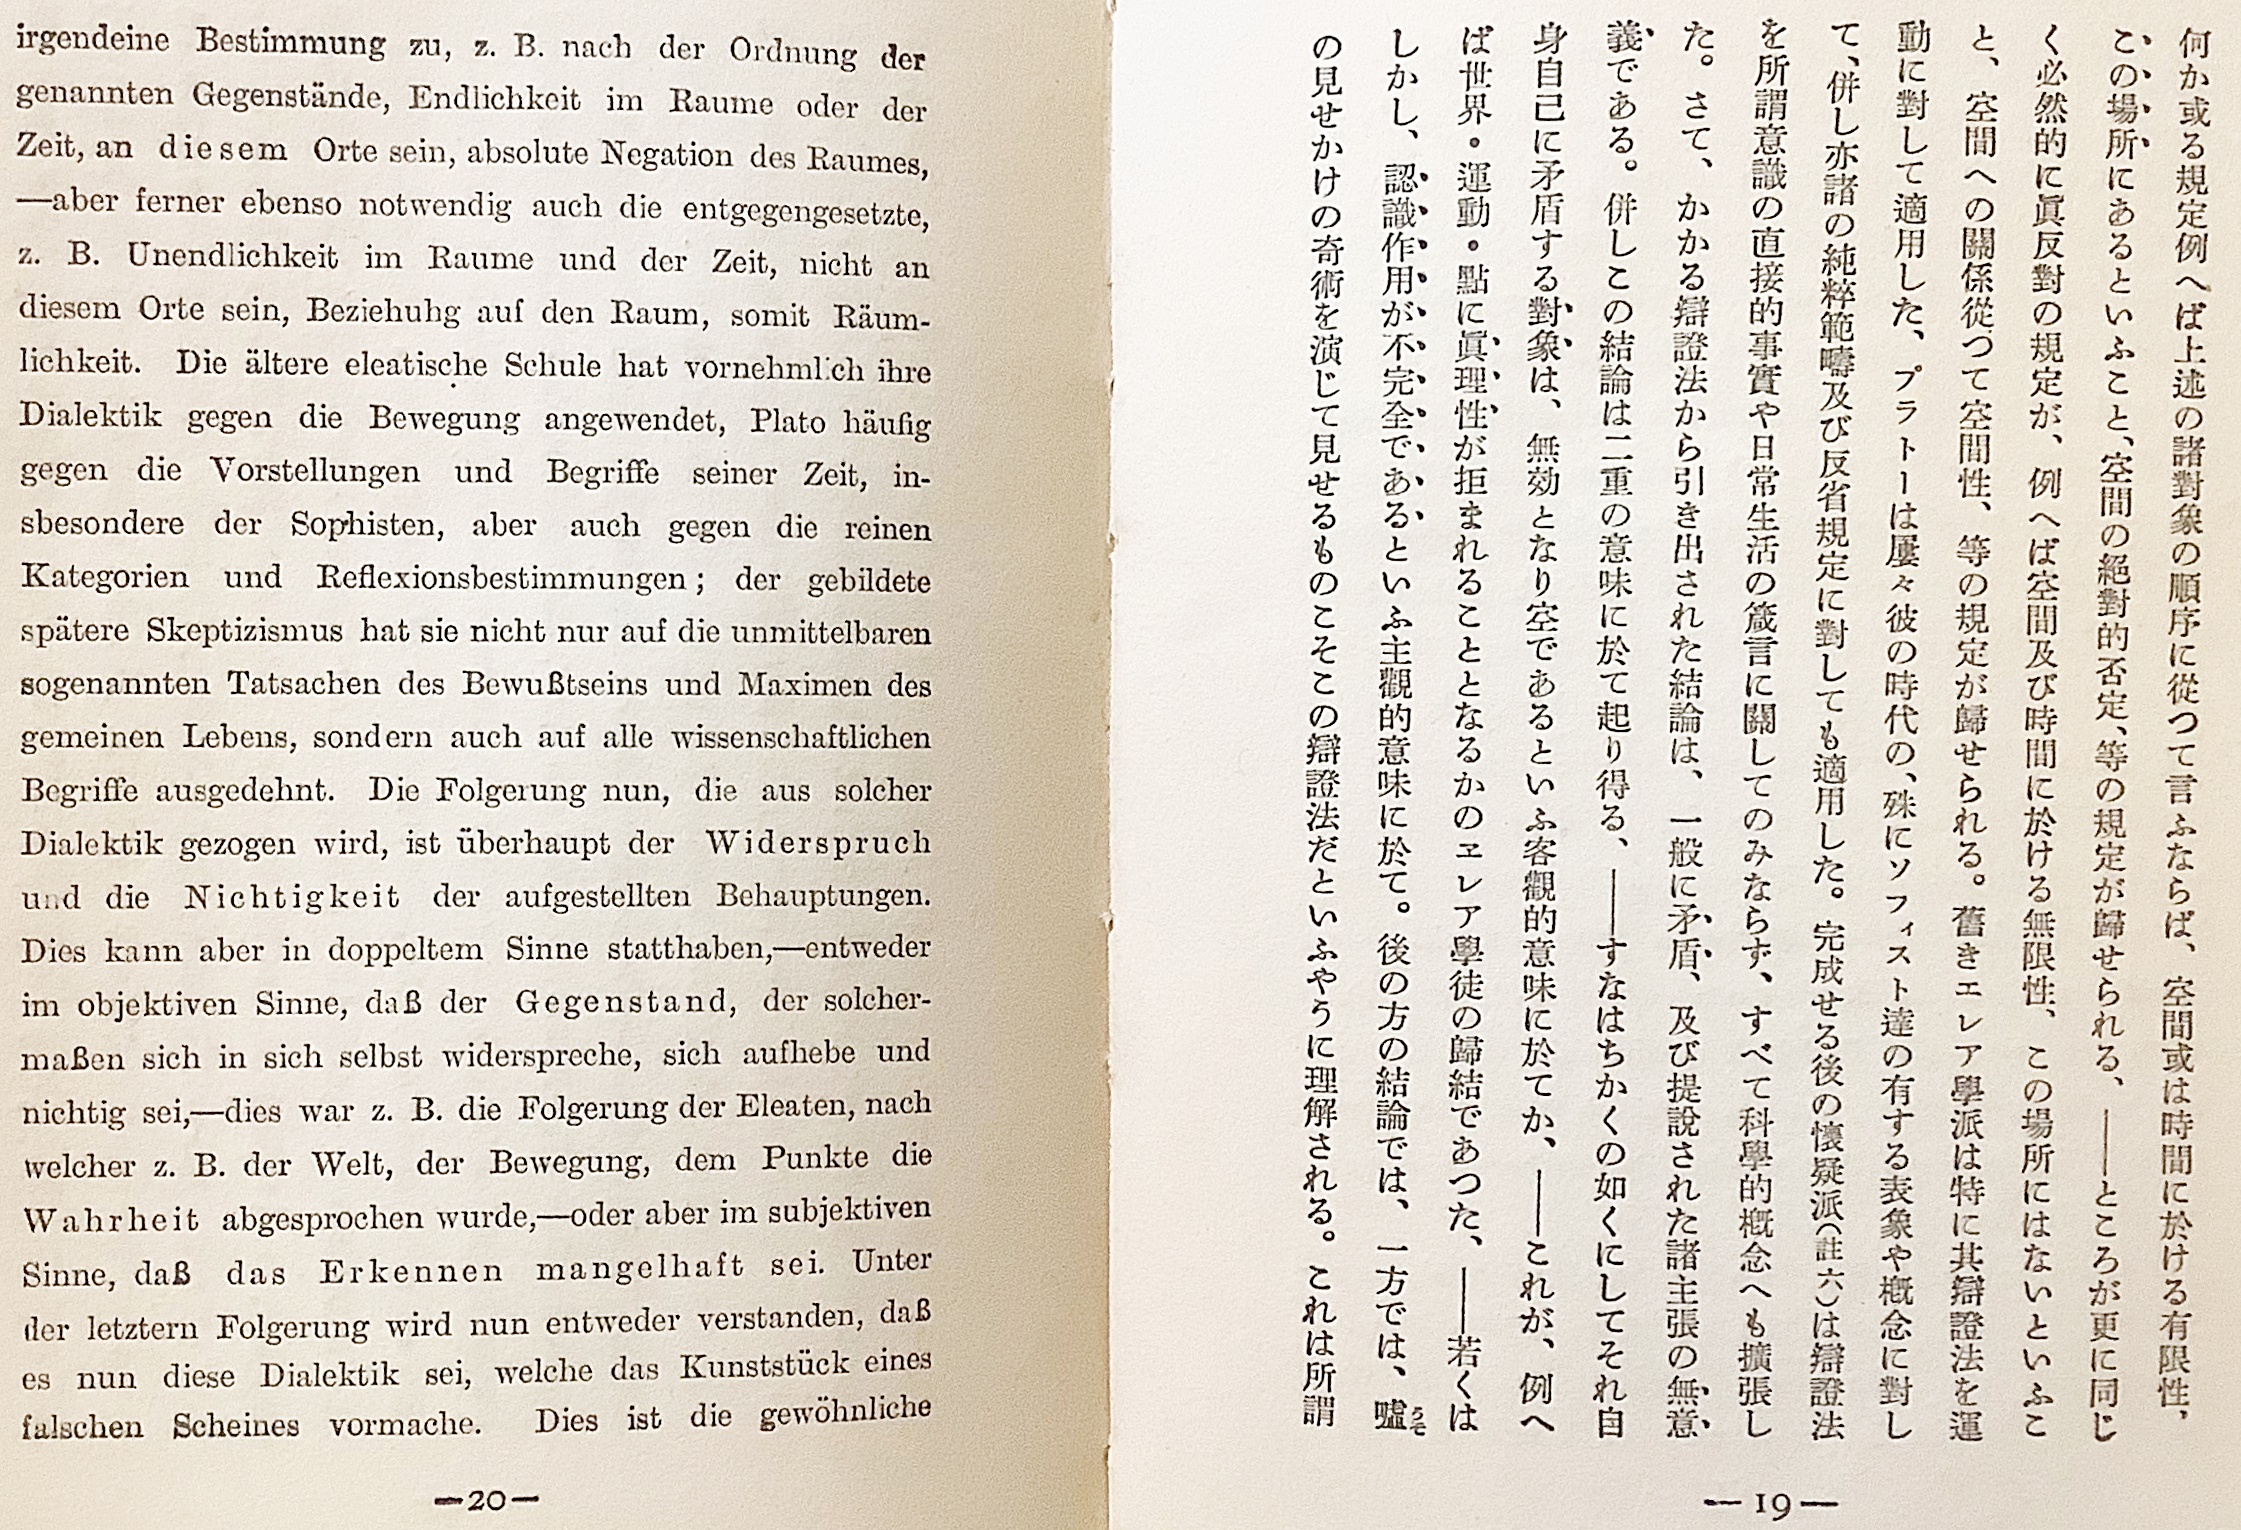 irgendeine Bestimmung zu, z. B. nach der Ordnung der
genannten Gegenstände, Endlichkeit im Raume oder der
Zeit, an diesem Orte sein, absolute Negation des Raumes,
—aber ferner ebenso notwendig auch die entgegengesetzte,
z. B. Unendlichkeit im Raume und der Zeit, nicht an
diesem Orte sein, Beziehuhg auf den Raum, somit Räum-
lichkeit. Die ältere eleatische Schule hat vornehmlich ihre
Dialektik gegen die Bewegung angewendet, Plato häufig
gegen die Vorstellungen und Begriffe seiner Zeit, in-
sbesondere der Sophisten, aber auch gegen die reinen
Kategorien und Reflexionsbestimmungen; der gebildete
spätere Skeptizismus hat sie nicht nur auf die unmittelbaren
sogenannten Tatsachen des Bewußtseins und Maximen des
gemeinen Lebens, sondern auch auf alle wissenschaftlichen
Begriffe ausgedehnt. Die Folgerung nun, die aus solcher
Dialektik gezogen wird, ist überhaupt der Widerspruch
und die Nichtigkeit der aufgestellten Behauptungen.
Dies kann aber in doppeltem Sinne statthaben,—entweder
im objektiven Sinne, daß der Gegenstand, der solcher-
maßen sich in sich selbst widerspreche, sich aufhebe und
nichtig sei,—dies war z. B. die Folgerung der Eleaten, nach
welcher z. B. der Welt, der Bewegung, dem Punkte die
Wahrheit abgesprochen wurde,—oder aber im subjektiven
Sinne, daß das Erkennen mangelhaft sei. Unter
der letztern Folgerung wird nun entweder verstanden, daß
es nun diese Dialektik sei, welche das Kunststück eines
falschen Scheines vormache. Dies ist die gewöhnliche
—20—
何か或る規定例へば上述の諸對象の順序に從つて言ふならば、空間或は時間に於ける有限性、
この場所にあるといふこと、空間の絕對的否定、等の規定が歸せられる、——ところが更に同じ
く必然的に眞反對の規定が、例へば空間及び時間に於ける無限性、この場所にはないといふこ
と、空間への關係從つて空間性、等の規定が歸せられる。舊きエレア學派は特に其辯證法を運
動に對して適用した、プラトーは屢々彼の時代の、殊にソフィスト達の有する表象や槪念に對し
て、併し亦諸の純粹範疇及び反省規定に對しても適用した。完成せる後の懷疑派(註六)は辯證法
を所謂意識の直接的事實や日常生活の箴言に關してのみならず、すべて科學的槪念へも擴張し
た。さて、かかる辯證法から引き出された結論は、一般に矛盾、及び提說された諸主張の無意
義である。併しこの結論は二重の意味に於て起り得る、——すなはちかくの如くにしてそれ自
身自己に矛盾する對象は、無効となり空であるといふ客觀的意味に於てか、——これが、例へ
ば世界・運動・點に眞理性が拒まれることとなるかのエレア學徒の歸結であつた、——若くは
しかし、認識作用が不完全であるといふ主觀的意味に於て。後の方の結論では、一方では、嘘うそ
の見せかけの奇術を演じて見せるものこそこの辯證法だといふやうに理解される。これは所謂
—19—